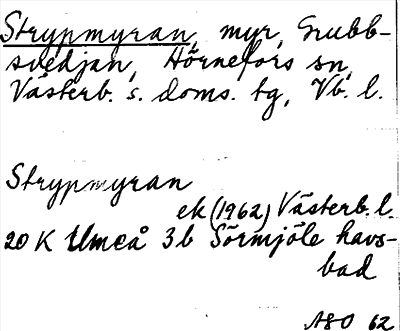 Strypmyran, myr, Grubb-
svedjan, Hörnefors sn,
Västerb. s. doms. tg, Vb. l.
Strypmyran
ek (1962) Västerb. l.
20 K Umeå 3b Sörmjöle havs-
bad
ASO 62